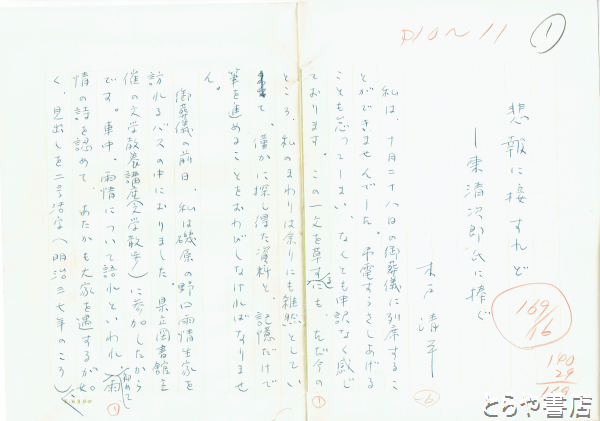 P10~11
①
悲報に接すれど
―東清次郎氏に捧ぐ
木戸清平
169
16
140
29
119
私は、十月二十八日の御葬儀に列席するこ
とができませんでした。弔電すらさしあげる
ことも怠ってしまい、なくとも申訳なく感じ
ております。この一文を草すにも、ただ今の
ところ、私のまわりは余りにも雑然としてい
て、僅かに探し得た資料と、記憶だけで
筆を進めることをおわびしなければなりませ
ん。
御葬儀の前日、私は磯原の野口雨情生家を
訪れるバスの中におりました。県立図書館主
催の文学教養講座(文学散歩)に参加したから
です。車中、雨情について語れといわれ、雨
情の詩を認めて、あたかも大家を遇するが如
く、見出しを二号活字(明治三七年のころ)
とらや書店